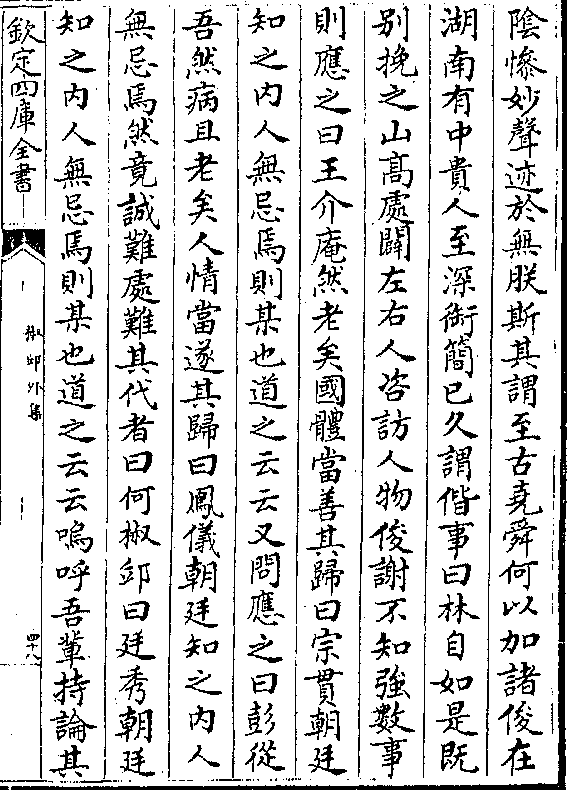 陰慘妙聲迹於無朕斯其謂至古堯舜何以加諸俊在
湖南有中貴人至深銜簡已久謂偕事曰林自如是既
別挽之山髙處闢左右人咨訪人物俊謝不知強數事
則應之曰王介庵然老矣國體當善其歸曰宗貫朝廷
知之内人無忌焉則某也道之云云又問應之曰彭從
吾然病且老矣人情當遂其歸曰鳳儀朝廷知之内人
無忌焉然竟誠難處難其代者曰何椒邱曰廷秀朝廷
知之内人無忌焉則某也道之云云嗚呼吾輩持論其
欽定四庫全書
椒邱外集
四十八